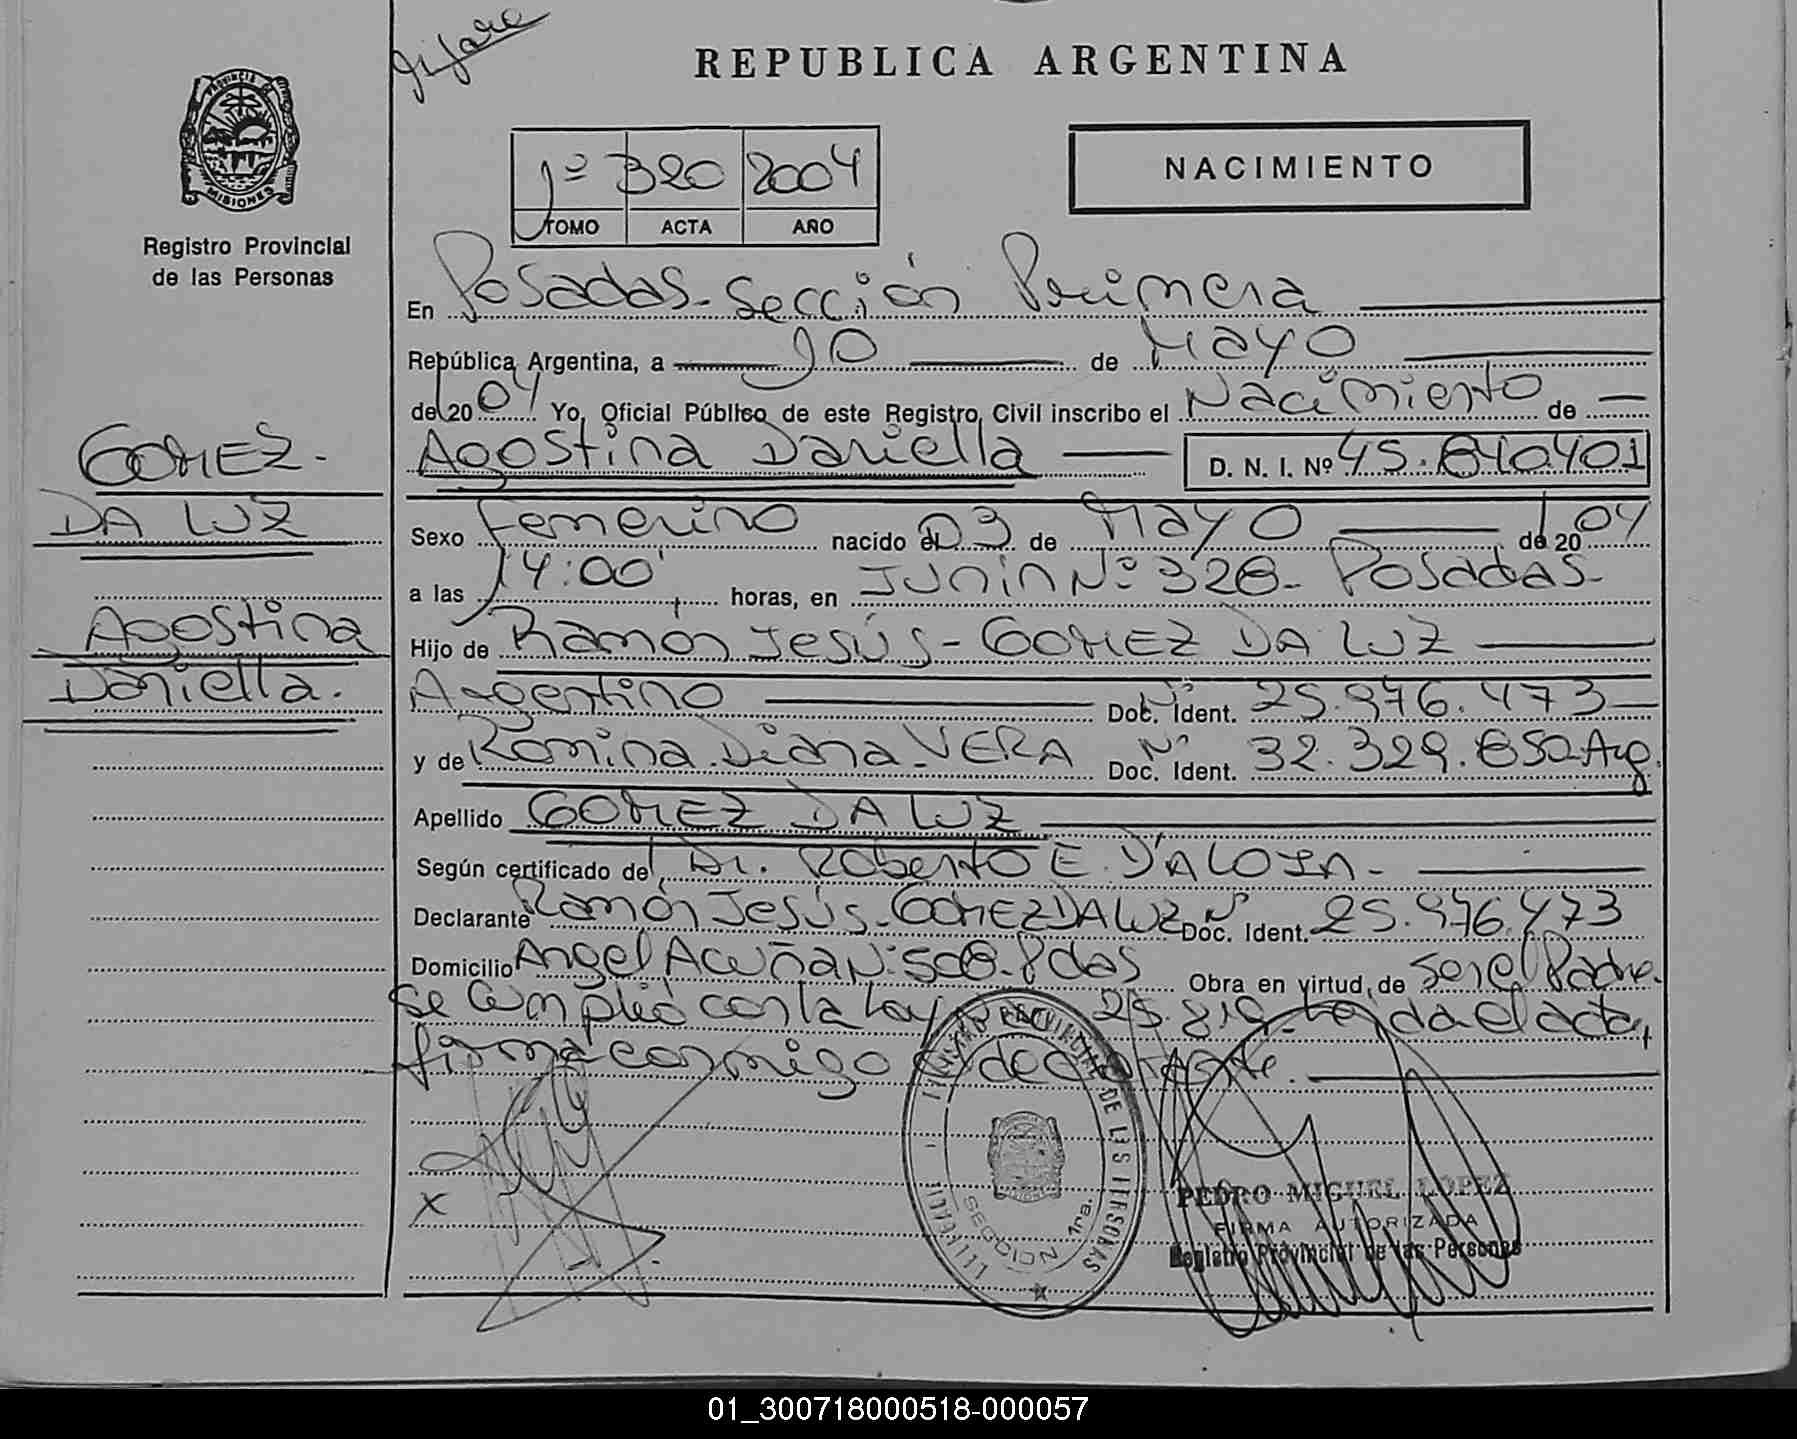 REPUBLICA ARGENTINA
PROVINCIA DE MISIONES
Registro Provincial
de las Personas
1º 320 2004
TOMO ACTA AÑO
NACIMIENTO
En Posadas-Sección Primera
República Argentina, a 10 de Mayo
del 2004 Yo, Oficial Público de este Registro Civil inscribo el Nacimiento de
Agostina Daniella D. N. I. Nº 45.840.401
GOMEZ-
DA LUZ
Agostina
Daniella.
Sexo Femenino nacido el 03 de Mayo de 2004
a las 14:00' horas, en Junin Nº 328- Posadas-
Hijo de Ramón Jesús- GOMEZ DA LUZ
Argentino Doc. Ident. Nº 25.976.473
y de Romina Diana VERA Doc. Ident. Nº 32.329.850 Arg.
Apellido GOMEZ DA LUZ
Según certificado del Dr. Roberto E. D'ALOIA-
Declarante Ramón Jesús- GOMEZ DA LUZ Doc. Ident. Nº 25.976.473
Domicilio Angel Acuña Nº 508- Pdas Obra en virtud de Ser el Padre.
Se cumplió con la Ley Nº 25.819- Leída el acta,
firma conmigo el declarante.
X
REGISTRO PROVINCIAL DE LAS PERSONAS
SECCION 1ra.
PEDRO MIGUEL LOPEZ
FIRMA AUTORIZADA
Registro Provincial de las Personas
01_300718000518-000057